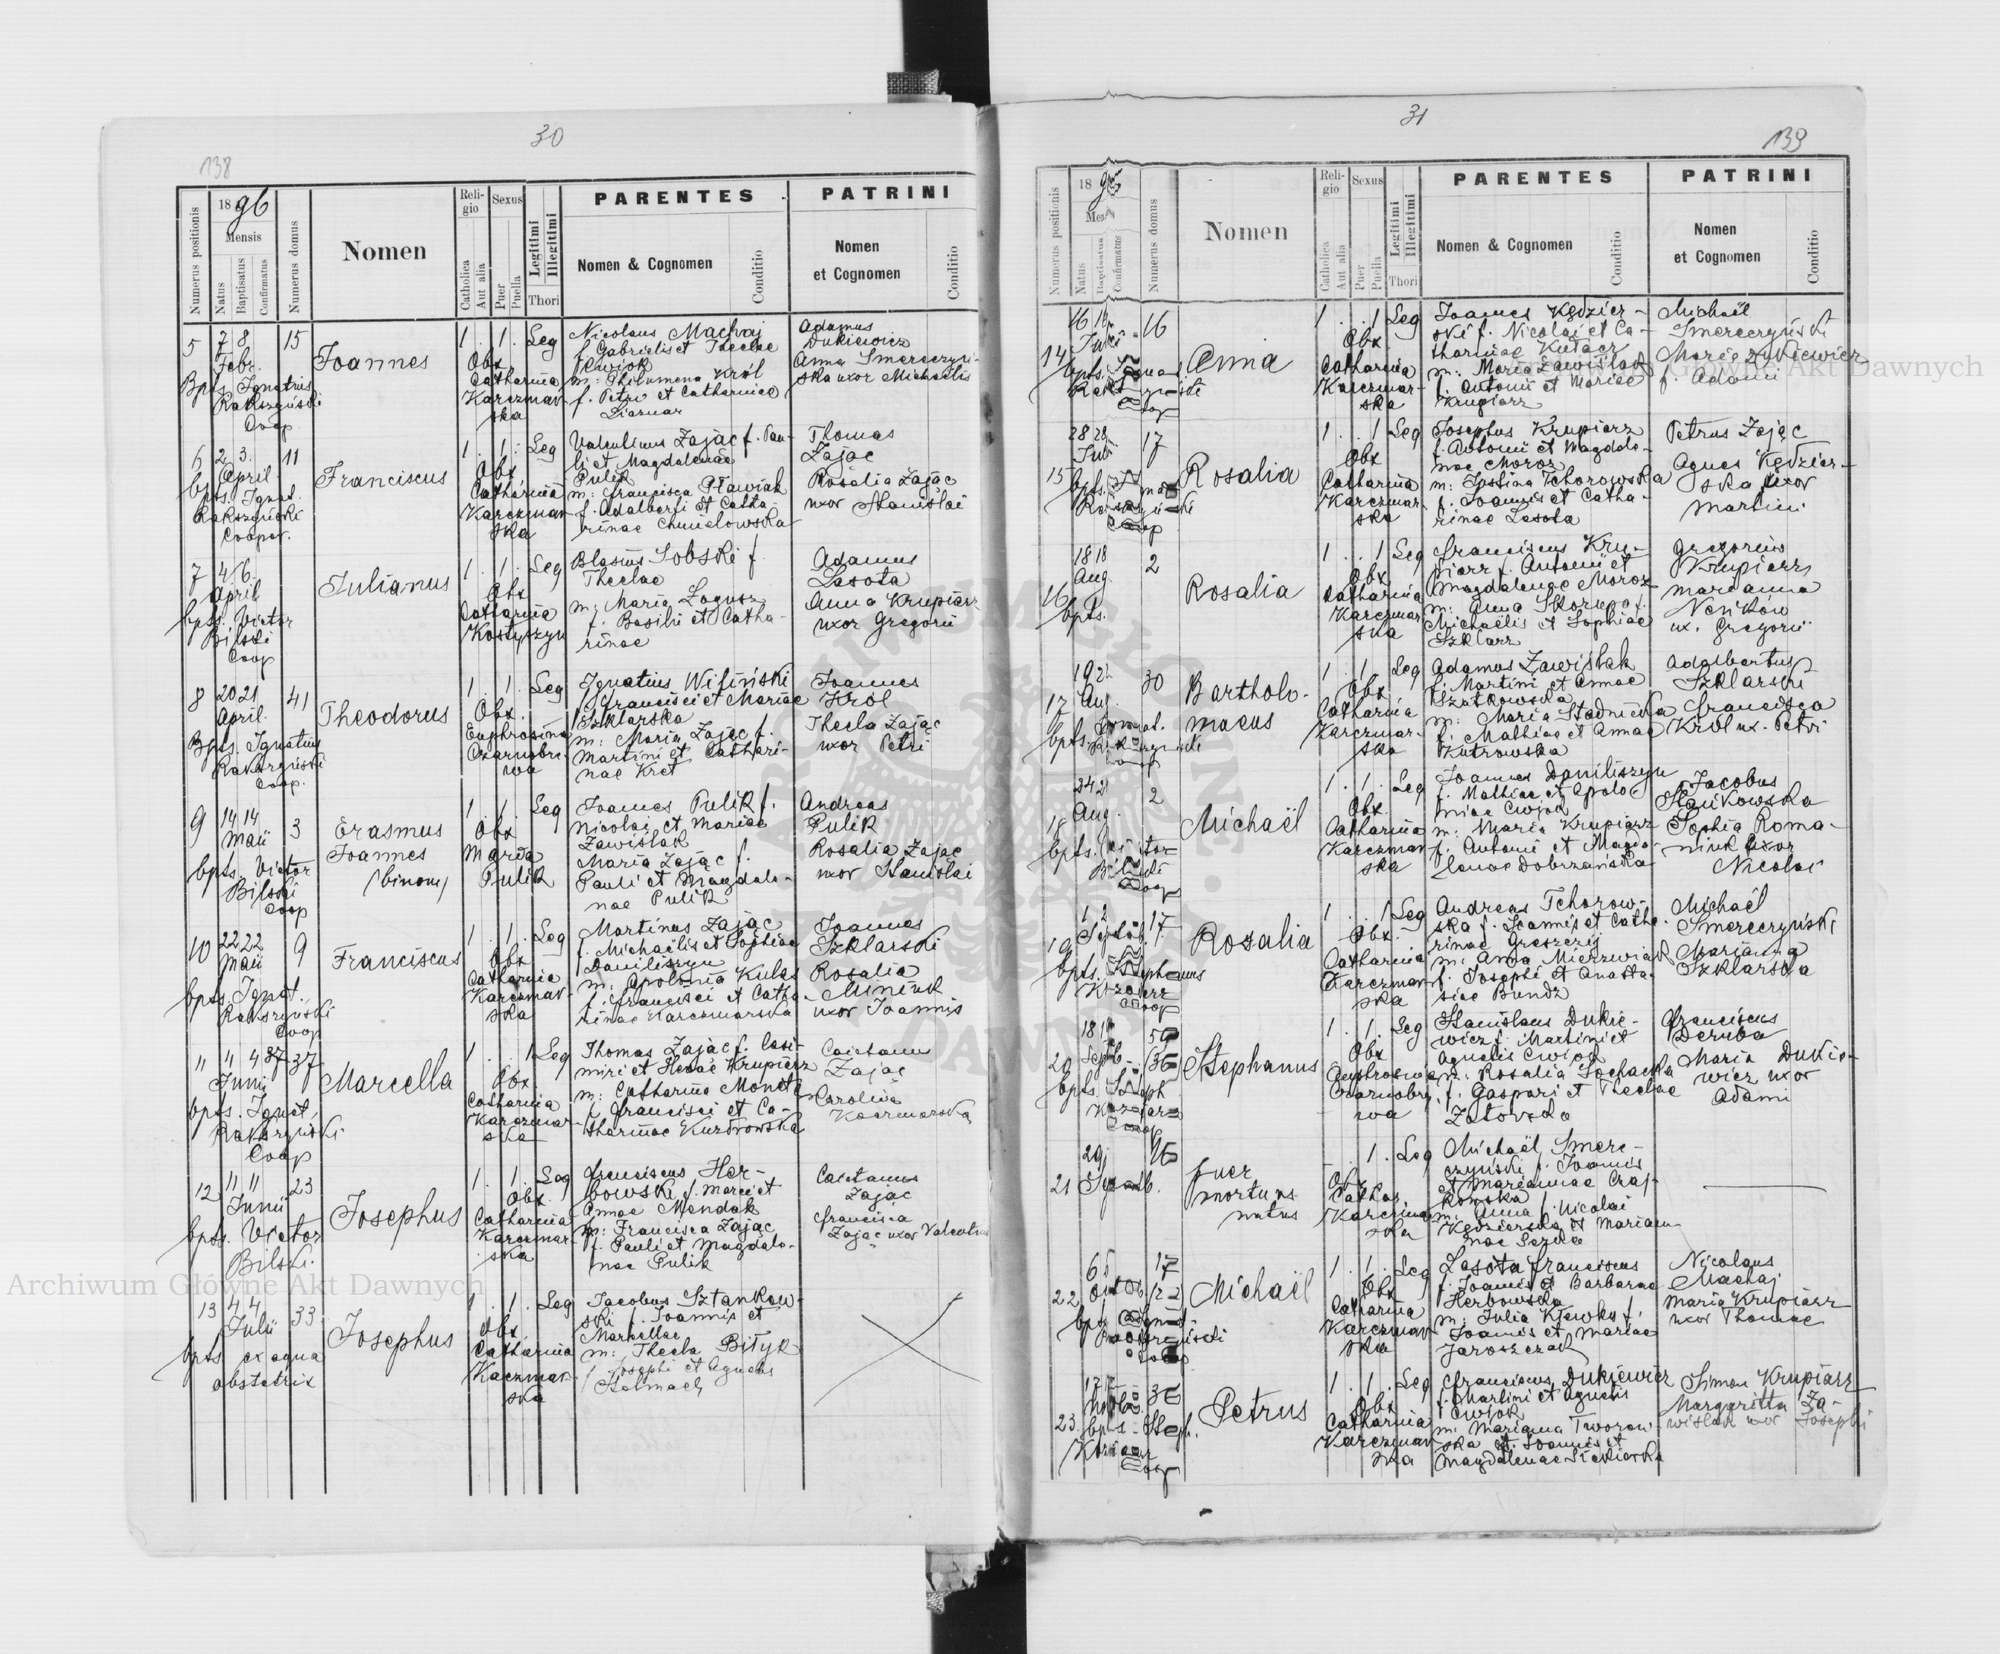 30
138
Numerus positionis
1896
Mensis
Natus
Baptisatus
Confirmatus
Numerus domus
Nomen
Religio
Catholica
Aut alia
Sexus
Puer
Puella
Legitimi
Illegitimi
Thori
PARENTES
Nomen & Cognomen
Conditio
PATRINI
Nomen
et Cognomen
Conditio
5 7 8 15
Febr.
Bpts. Ignatius
Rakszyński
Coop.
Joannes
1. 1. Leg
Obx
Catharina
Karczmar-
ska
Nicolaus Machaj
f. Gabrielis et Theclae
Cwiok
m: Philumena Król
f. Petri et Catharinae
Adamus
Dukiewicz
Anna Smereczyń-
ska uxor Michaelis
6 2 3. 11
April
bpts. Ignat.
Rakszyński
Cooper.
Franciscus
1. 1. Leg
Obx
Catharina
Karczmar-
ska
Valentinus Zając f. Pau-
li et Magdalenae
Pulik
m: Francisca Pławiak
f. Adalberti et Catha-
rinae Chmielowska
Thomas
Zając
Rosalia Zając
uxor Stanislai
7 4 6.
April
bpts. Victor
Bilski
Coop
Julianus
1. 1. Leg
Obx
Catharina
Kostyszyn
Blasius Sobski f.
Theclae
m: Maria Łogusz
f. Basilii et Catha-
rinae
Adamus
Lasota
Anna Krupiarz
uxor Gregorii
8 20 21 41
April.
Bpts. Ignatius
Rakszyński
Coop.
Theodorus
1. 1. Leg
Obx.
Euphrosina
Czarnobre-
wa
Ignatius Wiliński
f. Francisci et Mariae
Szklarska
m: Maria Zając f.
Martini et Cathari-
nae Kret
Joannes
Król
Thecla Zając
uxor Petri
9 14 14 3
Maii
bpts. Victor
Bilski
Coop
Erasmus
Joannes
(binom)
1. 1. Leg
Obx
Maria
Pulik
Joannes Pulik f.
Nicolai et Mariae
Zawiślak
Maria Zając f.
Pauli et Magdale-
nae Pulik
Andreas
Pulik
Rosalia Zając
uxor Stanislai
10 22 22 9
Maii
bpts. Ignat.
Rakszyński
Coop
Franciscus
1. 1. Leg
Obx
Catharina
Karczmar-
ska
Martinus Zając
f. Michaelis et Sophiae
Daniliszyn
m: Apolonia Kulas
f. Francisci et Catha-
rinae Karczmarska
Joannes
Szklarski
Rosalia
Miniuk
uxor Joannis
11 11 37
Junii
bpts. Ignat.
Rakszyński
Coop
Marcella
1. 1 Leg
Obx.
Catharina
Karczmar-
ska
Thomas Zając f. Casi-
miri et Krupiarz
m: Catharina Moneta
f. Francisci et Ca-
tharinae Kuzdrowska
Caietanus
Zając
Carolina
Kaczmarska
12 11 11 23
Junii
bpts. Victor
Bilski.
Josephus
1. 1. Leg
Obx.
Catharina
Karczmar-
ska
Franciscus Her-
bowski f. Marci et
Annae Mendak
m: Francisca Zając
f. Pauli et Magdale-
nae Pulik
Caietanus
Zając
Francisca
Zając uxor Valentini
13 4 4 33.
Julii
bpts ex aqua
obstetrix
Josephus
1. 1. Leg
Obx
Catharina
Kaczmar-
ska
Jacobus Sztankow-
ski f. Joannis et
Marcellae
m: Thecla Bityk
f. Josephi et Agnetis
Stelmach
31
139
Numerus positionis
1896
Mensis
Natus
Baptisatus
Confirmatus
Numerus domus
Nomen
Religio
Catholica
Aut alia
Sexus
Puer
Puella
Legitimi
Illegitimi
Thori
PARENTES
Nomen & Cognomen
Conditio
PATRINI
Nomen
et Cognomen
Conditio
14 16 16 16
Julii
Anna
1. 1 Leg
Obx.
Catharina
Karczmar-
ska
Joannes Kędzier-
ski f. Nicolai et Ca-
tharinae Kułacz
m: Maria Zawiślak
f. Antonii et Mariae
Krupiarz
Michaël
Smereczyński
Maria Dukiewicz
f. Adami
15 28 28 17
Juli
Rosalia
1. 1 Leg
Obx
Catharina
Karczmar-
ska
Josephus Krupiarz
f. Antonii et Magdale-
nae Moroz
m: Justina Tchorowska
f. Joannis et Catha-
rinae Lasota
Petrus Zając
Agnes Kędzier-
ska uxor
Martini
16 18 18 2
Aug.
bpts.
Rosalia
1. 1 Leg
Obx
Catharina
Karczmar-
ska
Franciscus Kru-
piarz f. Antonii et
Magdalenae Moroz
m: Anna Skorupa f.
Michaëlis et Sophiae
Szklarz
Gregorius
Krupiarz
Marianna
ux. Gregorii
17 19 30
Aug.
Bartholo-
maeus
1. 1. Leg
Obx
Catharina
Karczmar-
ska
Adamus Zawiślak
f. Martini et Annae
Szatkowska
m: Maria Stadnicka
f. Mathiae et Annae
Kutrowska
Adalbertus
Szklarski
Francisca
Król ux. Petri
18 24 2
Aug.
Michaël
1. 1. Leg
Obx
Catharina
Karczmar
ska
Joannes Daniliszyn
f. Mathiae et Apolo-
niae Cwiok
m: Maria Krupiarz
f. Antonii et Magda-
lenae Dobrzańska
Jacobus
Stankowska
Sophia Roma-
niuk uxor
Nicolai
19 1 2 17
Septeb.
Rosalia
1. 1 Leg
Obx.
Catharina
Karczmar-
ska
Andreas Tchorow-
ska f. Joannis et Catha-
rinae
m: Anna Mierzwiak
f. Josephi et Anasta-
siae Bundz
Michaël
Smereczyński
Marianna
Szklarska
20 18 36
Septb.
Stephanus
1. 1. Leg
Obx
Euphrosina
Czarnobry-
wa
Stanislaus Dukie-
wicz f. Martini et
Agnetis Cwiok
m: Rosalia Sochacka
f. Gaspari et Theclae
Franciscus
Deruba
Maria Dukie-
wicz uxor
Adami
21 29 16
Puer
mortuus
natus
1. Leg
Obx
Cathar.
Karczmar
ska
Michaël Smere-
czyński f. Joannis
et Mariannae Czaj-
kowska
m: Anna f. Nicolai
Kędzierska et Marian-
nae
22 6 17
Michaël
1. 1. Leg
Obx
Catharina
Karczmar
ska
Lasota Franciscus
f. Joannis et Barbarae
Herbowska
m: Julia f.
Joannis et Mariae
Jaroszczak
Nicolaus
Machaj
Maria Krupiarz
uxor Thomae
23. 17
Petrus
1. 1. Leg
Obx
Catharina
Karczmar
ska
Franciscus Dukiewicz
f. Martini et Agnetis
Cwiok
m: Marianna Tworow-
ska f. Joannis et
Magdalenae Siekierska
Simon Krupiarz
Margaritta Za-
wiślak uxor Josephi
Archiwum Główne Akt Dawnych
Archiwum Główne Akt Dawnych
ARCHIWUM GŁÓWNE AKT DAWNYCH